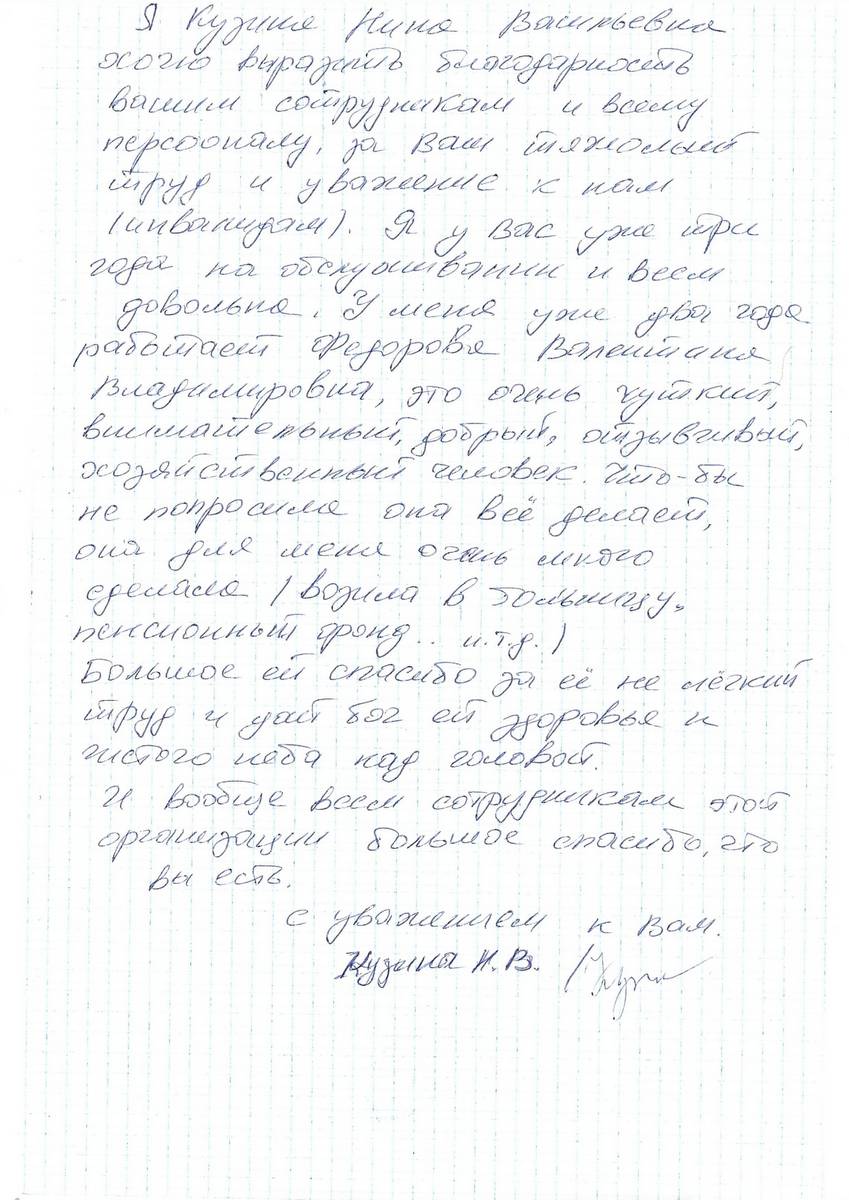 Я Кузина Нина Васильевна
хочю выразить благодарность
вашим сотрудникам и всему
персооналу, за Ваш тяжолый
труд и уважение к нам
(инвалидам). Я у Вас уже три
года на обслуживании и всем
довольна. У меня уже два года
работает Федорова Валентина
Владимировна, это очень чуткий,
внимательный, добрый, отзывчивый,
хозяйственный человек. Что-бы
не попросила она всё делает,
она для меня очень много
сделала (возила в больницу,
пенсионный фонд.. и.т.д.)
Большое ей спасибо за её не лёгкий
труд и дай бог ей здоровья и
чистого неба над головой.
И вообще всем сотрудникам этой
организации большое спасибо, что
вы есть.
с уважением к Вам.
Кузина Н.В. /